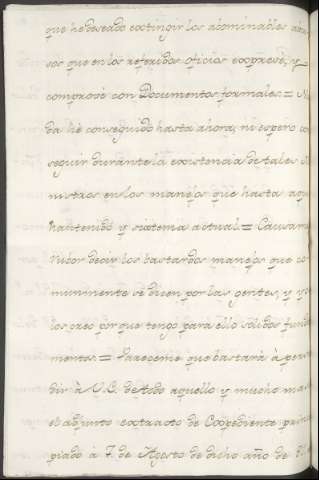 que he deseado extingir los abominables abu
sos que en los referidos oficios expresé, y
comprobé con Documentos formales = Na
da hé conseguido hasta ahora, ni espero con
seguir durante la existencia de tales Mi
nistros en los manejos que hasta aqui
hantenido y sistema actual = Causame
rubor decir los bastardos manejos que co
munmente se dicen por las gentes, y yo
los creo por que tengo para ello solidos funda
mentos = Pareceme que bastará à persua
dir à V.E. de todo aquello y mucho mas
el adjunto extracto de Expediente princi
piado á 7 de Agosto de dicho año de